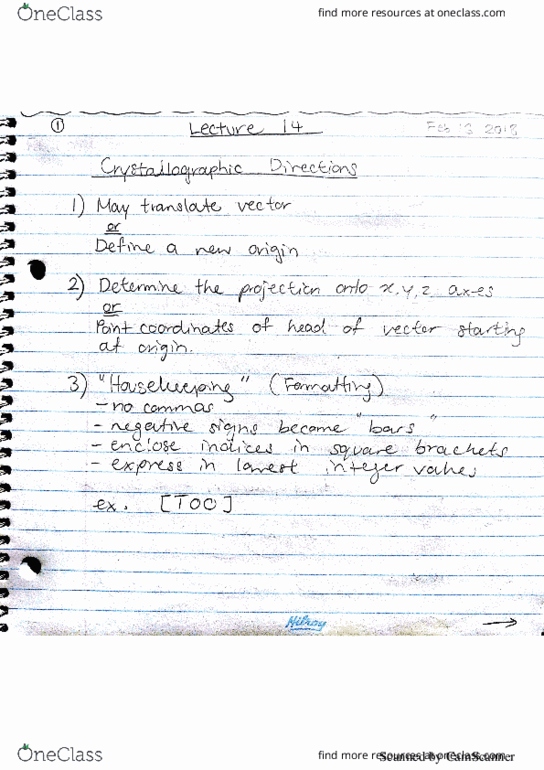 OneClass
find more resources at oneclass.com
①
Lecture 14
Feb 13 2018
Crystallographic Directions
1) May translate vector
or
Define a new origin
2) Determine the projection onto x,y,z ax-es
or
Point coordinates of head of vector starting
at origin.
3) "Housekeeping" (Formatting)
- no commas
- negative signs become "bars"
- enclose indices in square brackets
- express in lowest integer values
ex. [1̅00]
Hilroy
OneClass
find more resources at oneclass.com
Scanned by CamScanner